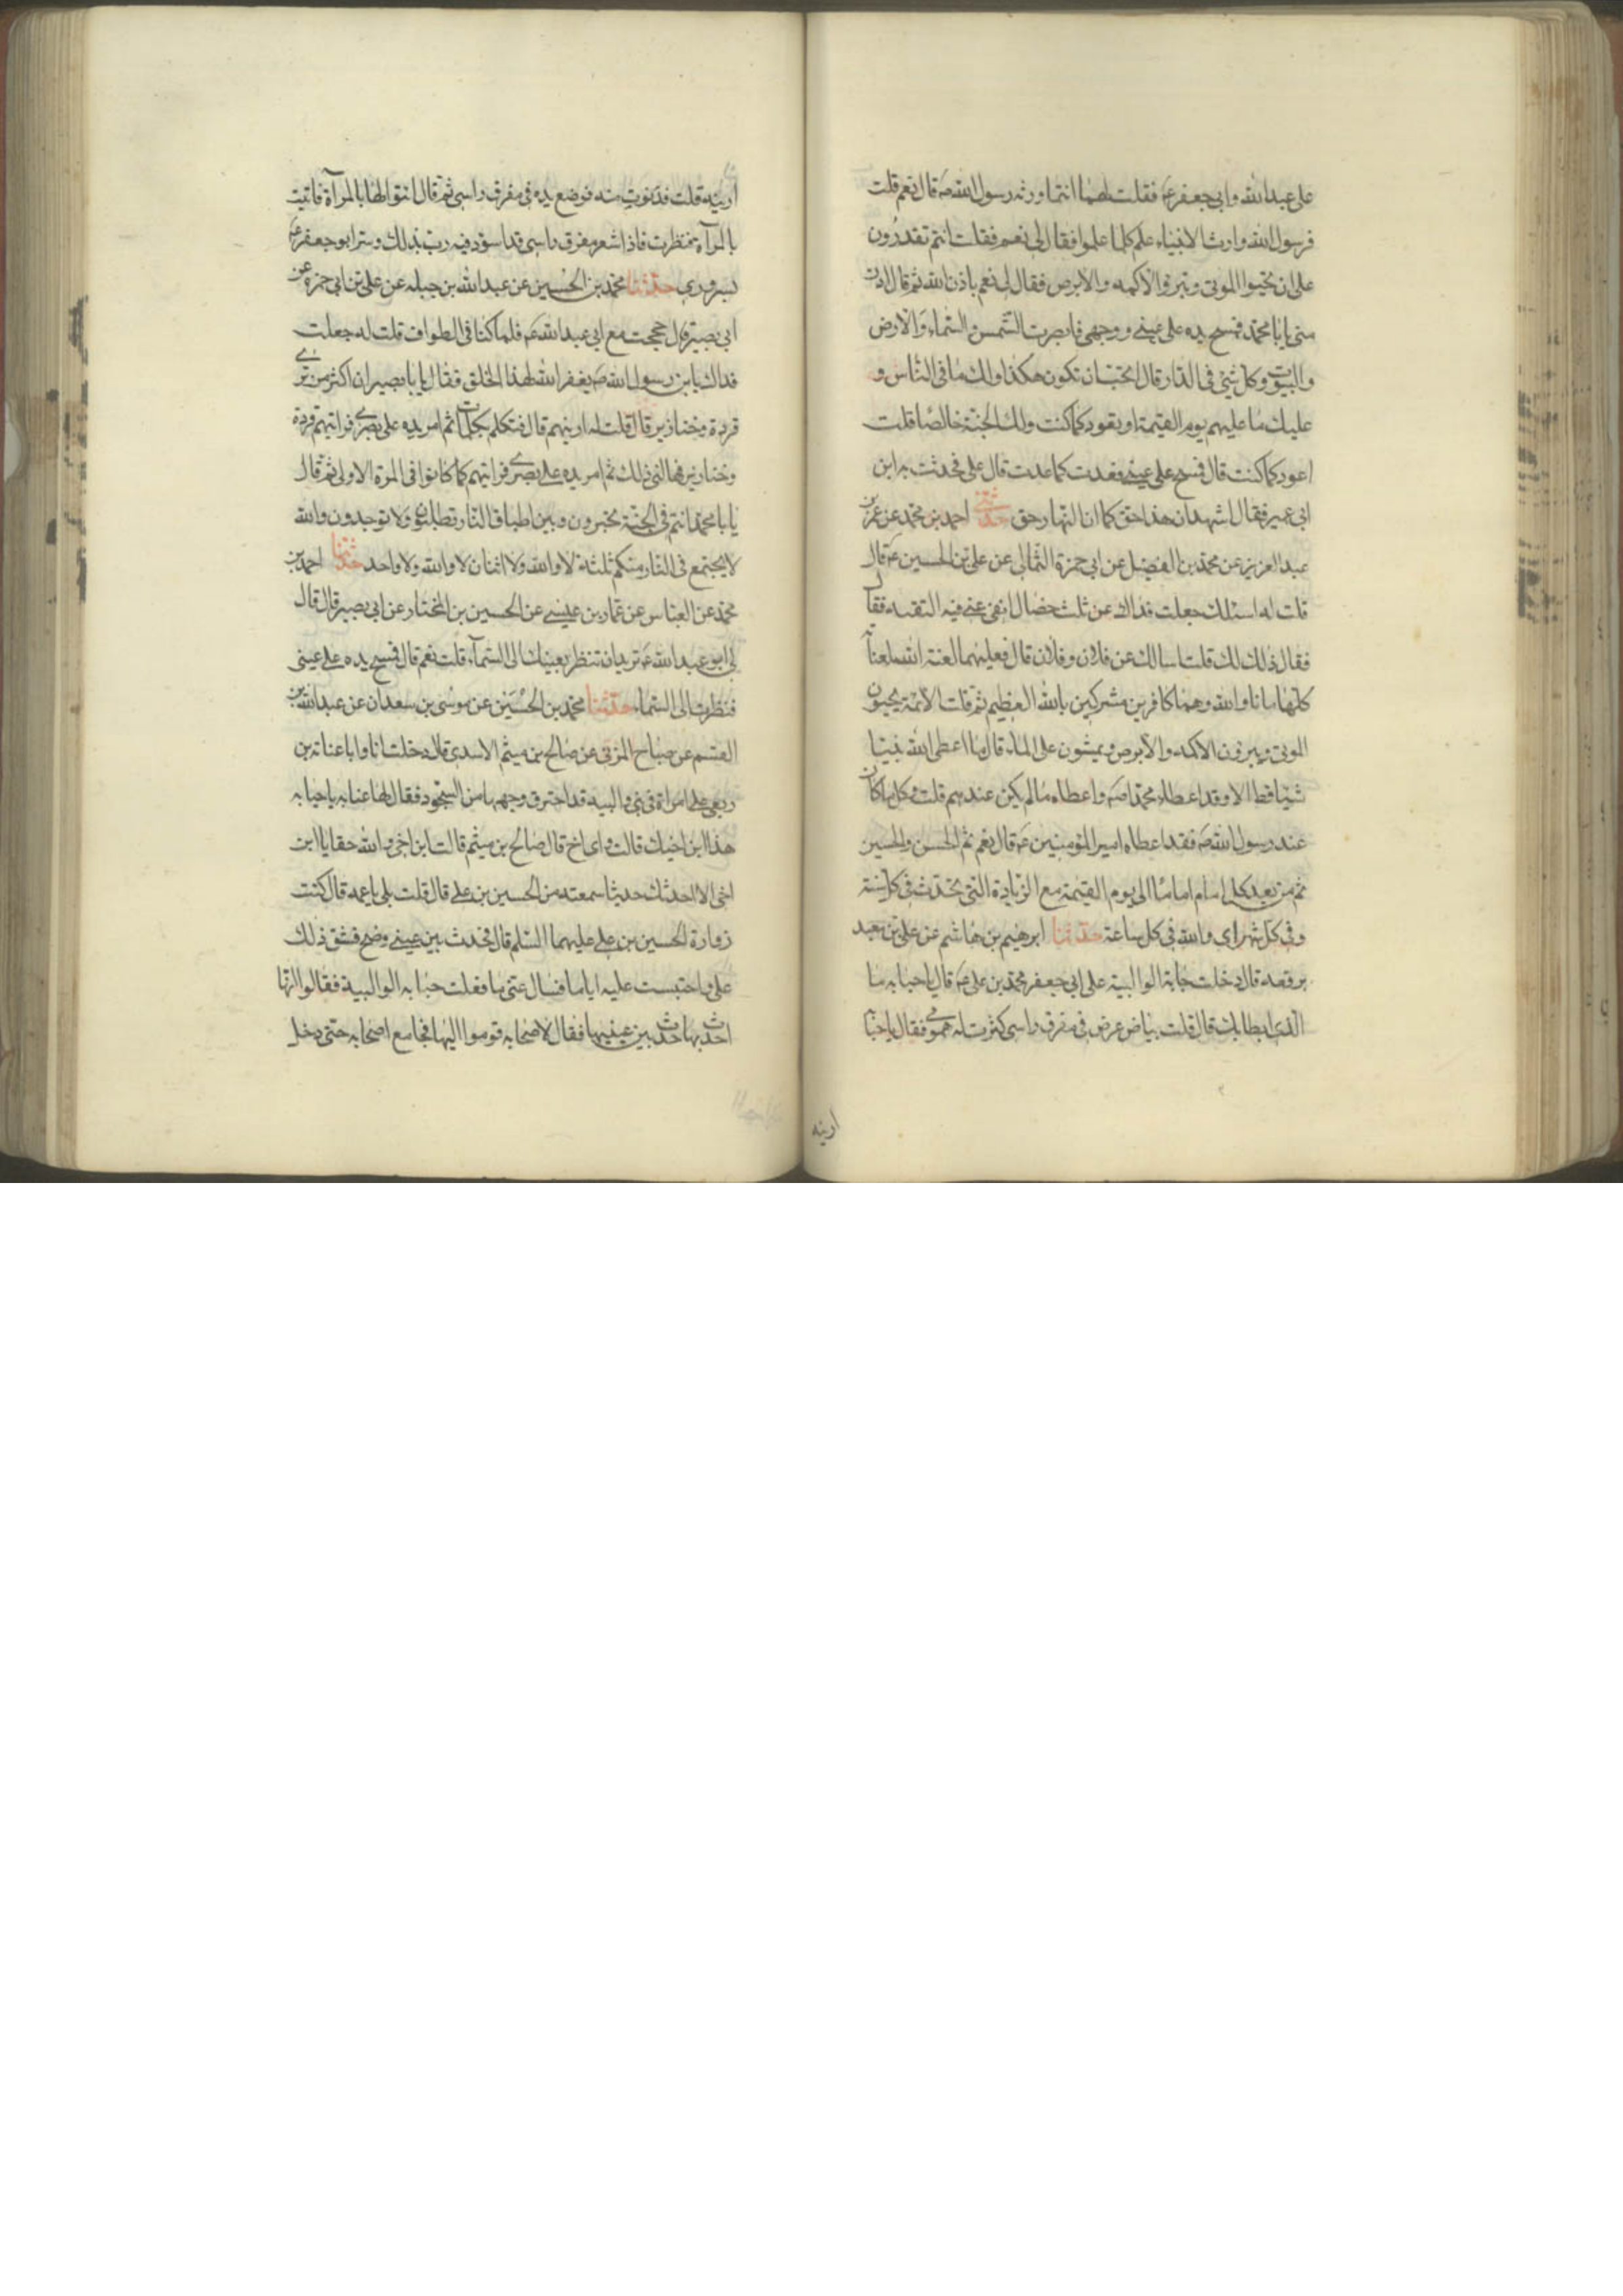 على عبدالله وابي جعفر ع فقلت لهما انتما ورثه رسول الله ص قال نعم قلت
فرسول الله وارث الانبياء علم كلما علموا فقال لي نعم فقلت انتم تقدرون
على ان تحيوا الموتى وتبرؤا الاكمه والابرص فقال لي نعم باذن الله ثم قال ادن
منى يا با محمد فمسح يده على عينى ووجهى فابصرت الشمس والسماء والارض
والبيوت وكل شئ في الدار قال اتحب ان تكون هكذا ولك ما فى الناس و
عليك ما عليهم يوم القيمة او تعود كما كنت ولك الجنة خالصا قلت
اعود كما كنت قال فمسح على عينى فعدت كما عدت قال على فحدثت به ابن
ابى عمير فقال اشهد ان هذا حق كما ان النهار حق حدثنى احمد بن محمد عن عمر بن
عبدالعزيز عن محمد بن الفضيل عن ابى حمزة الثمالى عن على بن الحسين ع قال
قلت له اسئلك جعلت فداك عن ثلث خصال انفى عنى فيه التقيه فقال
فقال ذلك لك قلت اسالك عن فلان وفلان قال فعليهما لعنة الله بلعناته
كلها ماتا والله وهما كافرين مشركين بالله العظيم ثم قلت الائمة يحيون
الموتى ويبرؤن الاكمه والابرص ويمشون على الماء قال ما اعطى الله نبيا
شيئا قط الا وقد اعطاه محمدا ص واعطاه مالم يكن عندهم قلت وكل ما كان
عند رسول الله ص فقد اعطاه امير المؤمنين ع قال نعم ثم الحسن والحسين
ثم من بعد كل امام اماما الى يوم القيمة مع الزيادة التي تحدث فى كل سنة
وفى كل شهر اى والله فى كل ساعة حدثنا ابرهيم بن هاشم عن على بن معبد
يرفعه قال دخلت حبابة الوالبية على ابى جعفر محمد بن على ع قال يا حبابه ما
الذى ابطا بك قال قلت بياض عرض فى مفرق راسى كثرت له همومى فقال يا حبابة
ارينه
ارينيه قلت فدنوت منه فوضع يده فى مفرق راسى ثم قال ائتوا لها بالمرآة فاتيت
بالمرآه فنظرت فاذا شعر مفرق راسى قد اسود فيه رت بذلك وسر ابو جعفر ع
بسرورى حدثنا محمد بن الحسين عن عبدالله بن جبله عن على بن ابى حمزه عن
ابى بصير قال حججت مع ابى عبدالله ع فلما كنا فى الطواف قلت له جعلت
فداك يابن رسول الله ص يغفر الله لهذا الخلق فقال يا با بصير ان اكثر من ترى
قردة وخنازير قال قلت له ارينهم قال فتكلم بكلمات ثم امر يده على بصرى فراتيهم قردة
وخنازير فهالنى ذلك ثم امر يده على بصرى فراتيهم كما كانوا فى المرة الاولى ثم قال
يا با محمد انتم فى الجنة تحبرون وبين اطباق النار تطلبون فلا توجدون والله
لا يجتمع فى النار منكم ثلثة لا والله ولا اثنان لا والله ولا واحد حدثنا احمد بن
محمد عن العباس عن عمار بن عيسى عن الحسين بن المختار عن ابى بصير قال قال
لى ابو عبدالله ع تريد ان تنظر بعينك الى السماء قلت نعم قال فمسح يده على عينى
فنظرت الى السماء حدثنا محمد بن الحسين عن موسى بن سعدان عن عبدالله بن
القسم عن صباح المزنى عن صالح بن ميثم الاسدى قال دخلت انا وابا عناية بن
ربعى على امراة فى بنى والبيه قد احترق وجهها من السجود فقال لها عنابه يا حبابه
هذا ابن اخيك قالت واى اخ قال صالح بن ميثم قالت ابن اخى والله حقا يا ابن
اخى الا احدثك حديثا سمعته من الحسين بن على قال قلت بلى يا عمه قال كنت
زوارة الحسين بن على عليهما السلم قال فحدث بين عينى وضح فشق ذلك
على واحتبست عليه اياما فسال عنى ما فعلت حبابه الوالبية فقالوا انها
احدث بها حدث بين عينيها فقال لاصحابه قوموا اليها فجا مع اصحابه حتى دخل